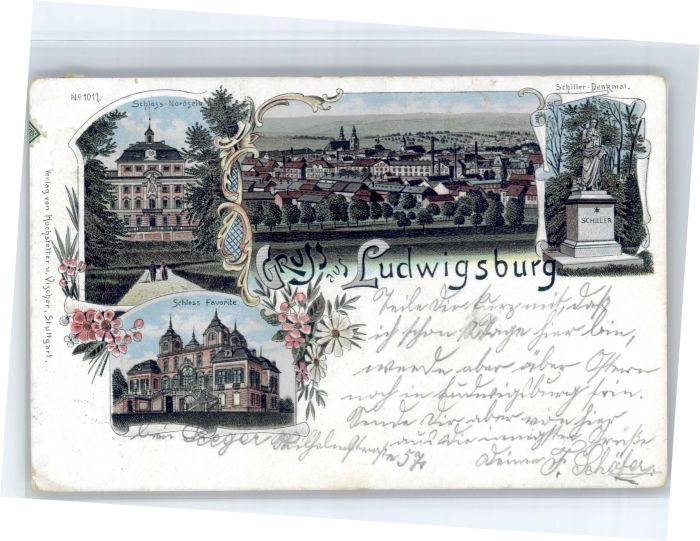 No 1017.
Schloss-Nordseite
Schiller-Denkmal.
SCHILLER
Gruss aus Ludwigsburg
Schloss Favorite
Verlag von Hochstetter u. Vischer, Stuttgart.
Teile Dir kurz mit, daß
ich schon Tage hier bin,
werde aber über Ostern
noch in Ludwigsburg sein.
Sende Dir aber von hier
aus die innigsten Grüße
Deine F. Schäfer.
bei Seeger Wilhelmstraße 57.